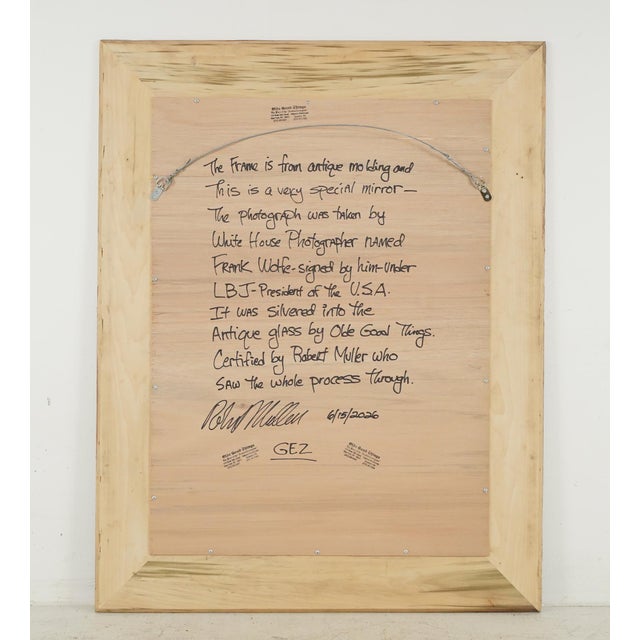 Olde Good Things
The Frame is from antique molding and
This is a very special mirror—
The photograph was taken by
White House Photographer NAMED
FRANK Wolfe-signed by him-under
LBJ-President of the U.S.A.
It was silvered into the
Antique glass by Olde Good Things.
Certified by Robert Muller who
SAW the whole process through.
Robert Muller 6/15/2026
Olde Good Things
GEZ
Olde Good Things